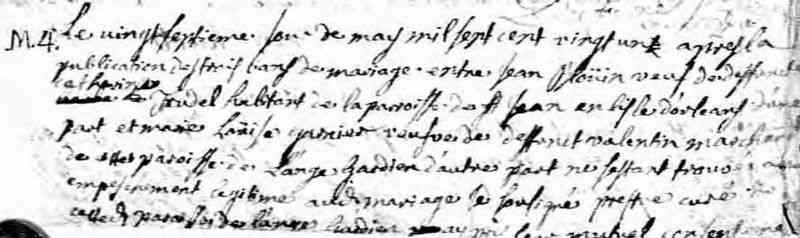 M.4. Le vingt septieme Jour de may mil sept cent vingt un apres la
publication des trois bans de mariage entre Jean ploüin veuf de deffunct
catherine Trudel habitant de la paroisse de St Jean en lisle dorleans dune
part et marie Loüise garnier veufve de deffunct valentin marchan
de cette paroisse de Lange Gardien dautre part ne sestant trouvé
empeschement legitime audt mariage Je soussigné prestre curé de
paroisse de lange Gardien ay pris leur mutuel consentement